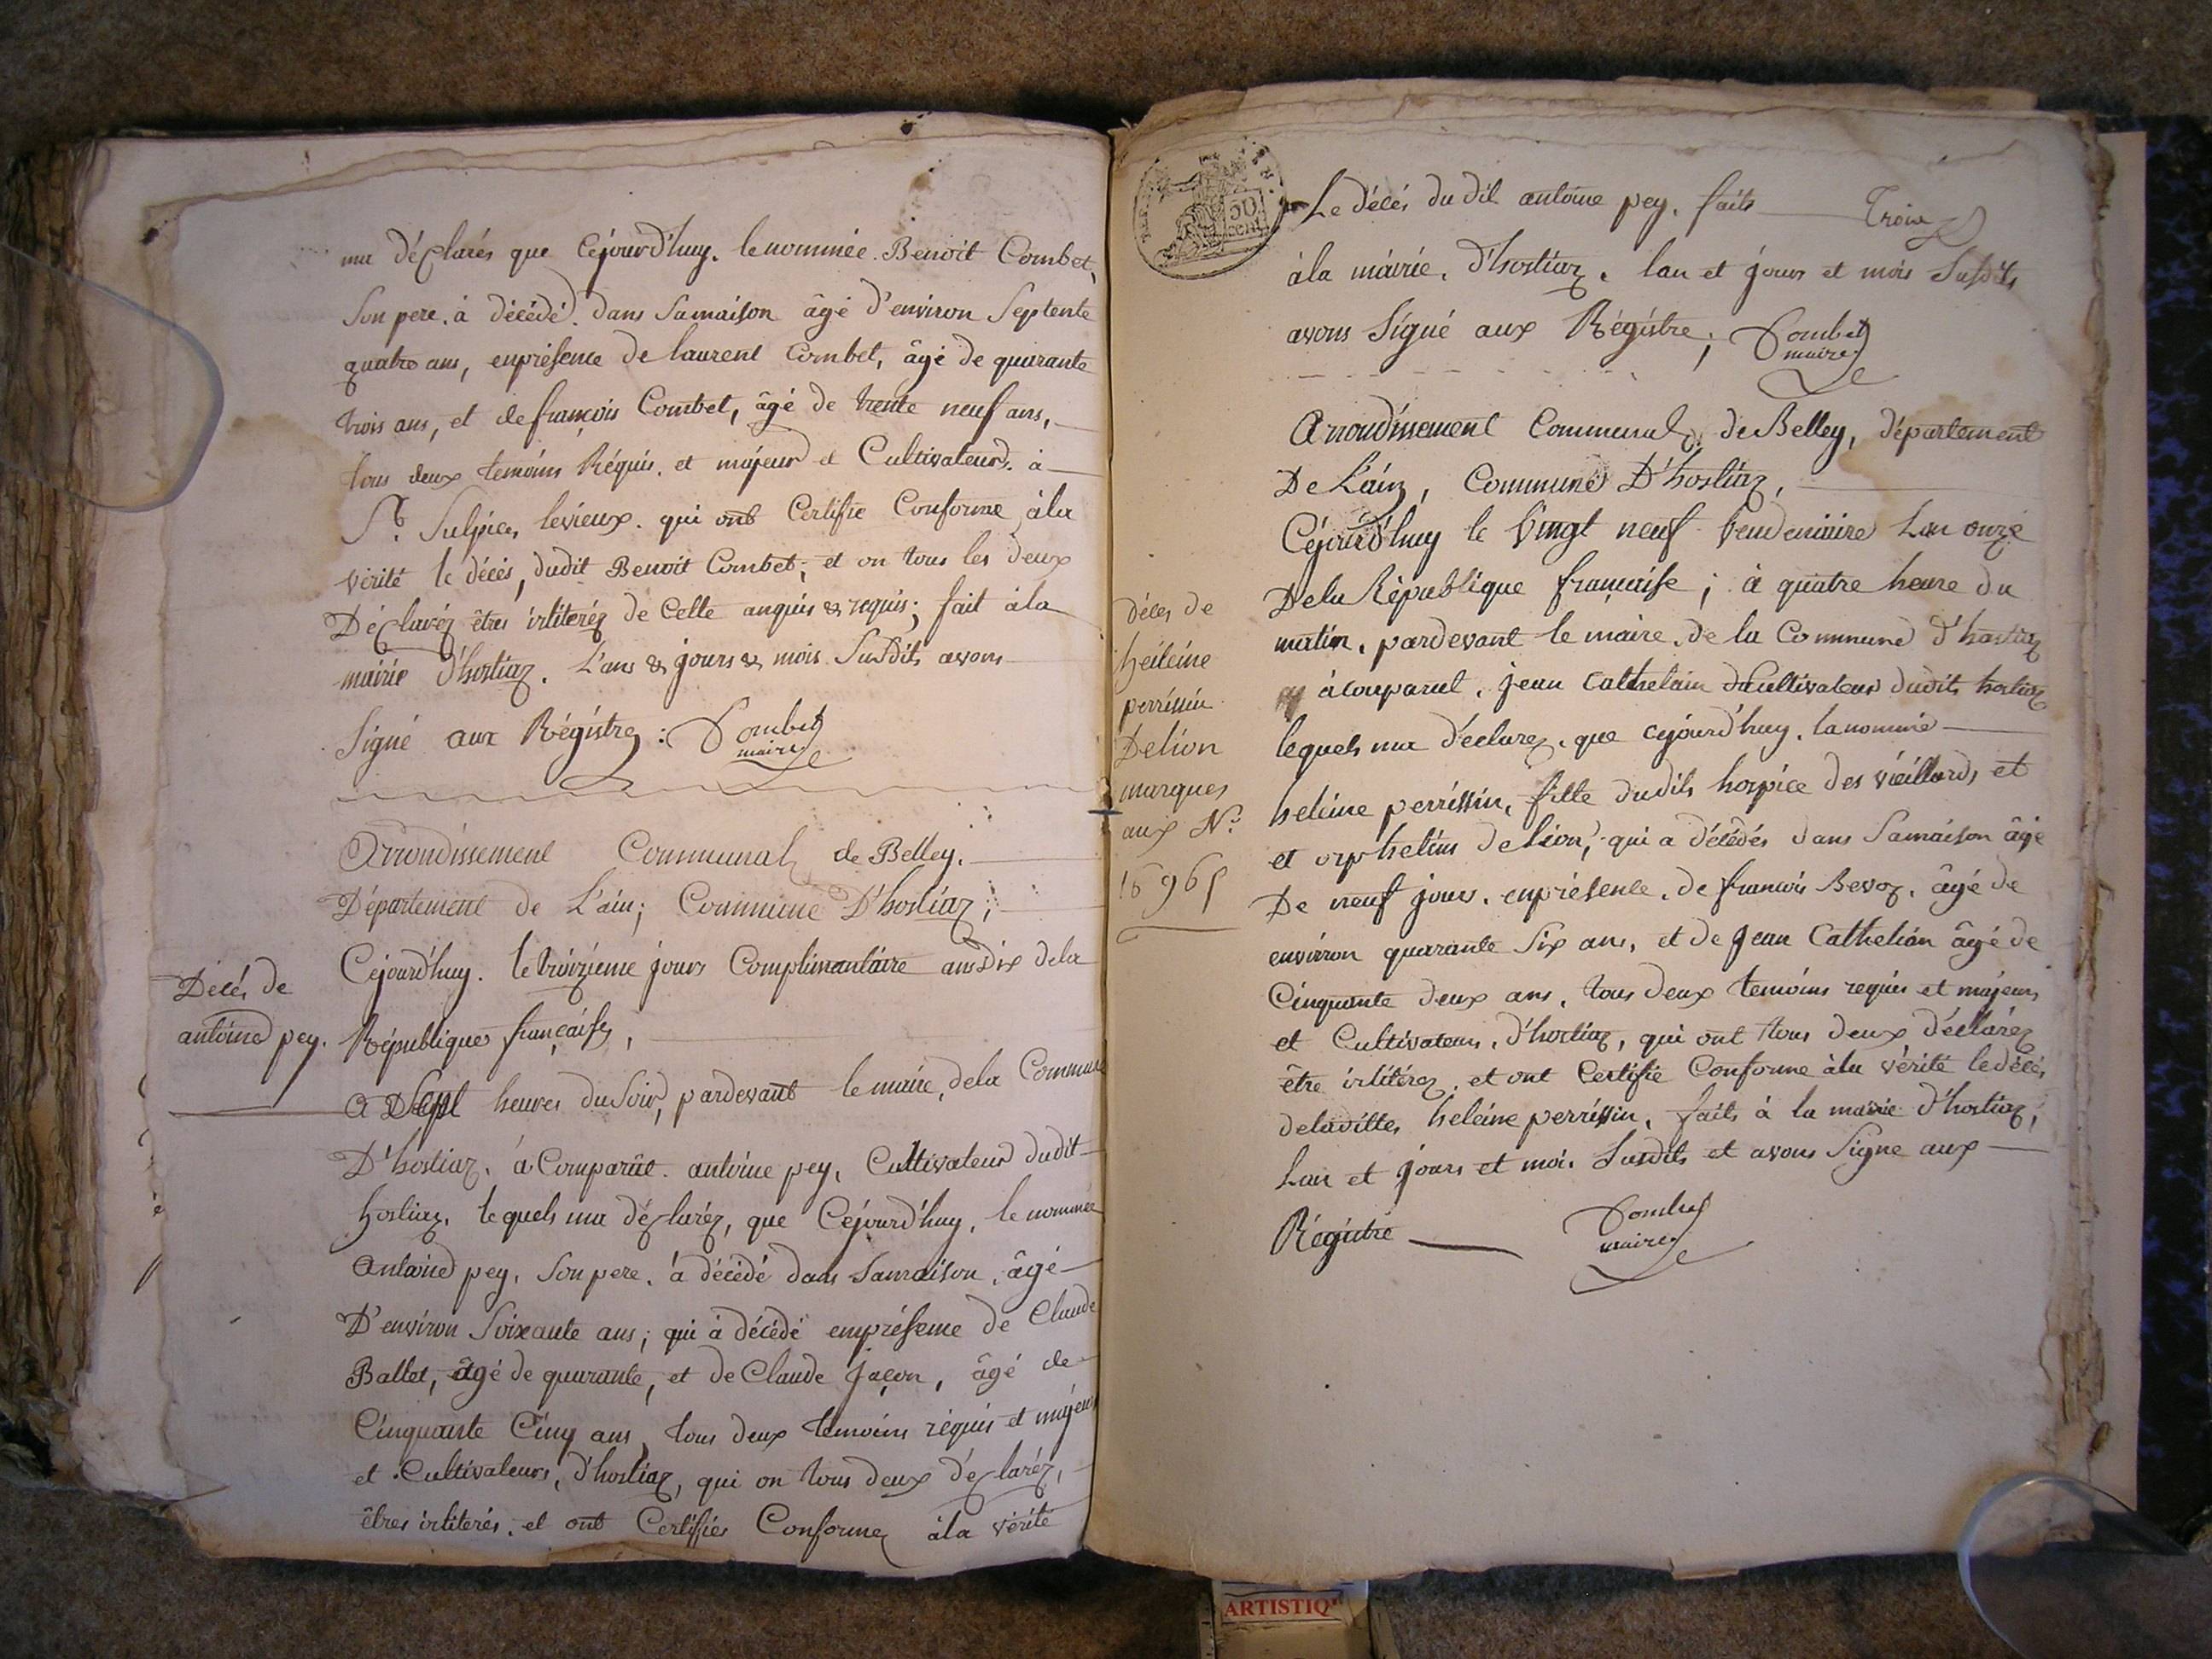 ma déclarés que Céjourd'huy. le nommée. Benoit Combet,
Son pere. à décédé. dans Samaison âgé d'environ Septente
quatre ans, enprésence de laurent Combet, âgé de quarante
trois ans, et de françois Combet, âgé de trente neuf ans,
tous deux temoins Réquis. et majeur et Cultivateurs. à
St. Sulpice, levieux. qui ont Certifie Conforme àla
vérité le décés, dudit Benoit Combet; et on tous les deux
Déclaréz êtres irliteréz de Celle anquis & requis; fait àla
mairie d'hostiaz. L'ans & jours & mois Susdits avons
Signé aux Régistre: Combet
maire
Arrondissement Communal de Belley.
Département de L'ain; Commune D'hostiaz;
Décés de
antoine pey.
Céjourd'huy. le troizieme jours Complimantaire ans Dix dela
République française,
A Sept heures du Soir, pardevant le maire, dela Commune
D'hostiaz. à Comparût. antoine pey, Cultivateur dudit
hostiaz. lequels ma décларéz, que Céjourd'huy, le nommée
Antoine pey, Son pere. à décédé dans Samaison, âgé
D'environ Soixante ans; qui à décédé emprésence de Claude
Ballet, âgé de quarante, et de Claude Jaçon, âgé de
Cinquante Cinq ans, tous deux temoins réquis et majeurs
et Cultivateurs, d'hostiaz, qui on tous deux déclaréz,
êtres irliterés. et ont Certifiés Conforme àla vérité
50
Le décés du dit antoine pey. faits Trois
àla mairie. d'hostiaz. lan et jours et mois Susdits
avons Signé aux Régistre; Combet
maire
Arrondissement Communal de Belley, département
De L'ain, Commune D'hostiaz,
Décés de
heileine
perrissin
Delion
marques
aux No:
16965
Céjourd'huy le Vingt neuf Vendemiaire Lan onze
Dela République française; à quatre heure du
matin. pardevant le maire. de la Commune d'hostiaz
à comparut. jean Cathelain Cultivateur dudits hostiaz
lequels ma déclarez. que cejourd'huy. la nommé
heleine perrissin, fille dudits hospice des vieillards et
et orphelins de Lion, qui a décédés dans Samaison âgé
De neuf jours. enprésence. de francois Bevoz. âgé de
environ quarante Six ans, et de Jean Cathelián âgé de
Cinquante deux ans, tous deux temoins requis et majeurs
et Cultivateurs. d'hostiaz, qui ont tous deux déclaréz
être irlitérez. et ont Certifie Conforme àla vérité le décés,
deladittes heleine perrissin. faits à la mairie d'hostiaz,
Lan et jours et mois Susdits et avons Signe aux
Régistre Combet
maire
ARTISTIQ